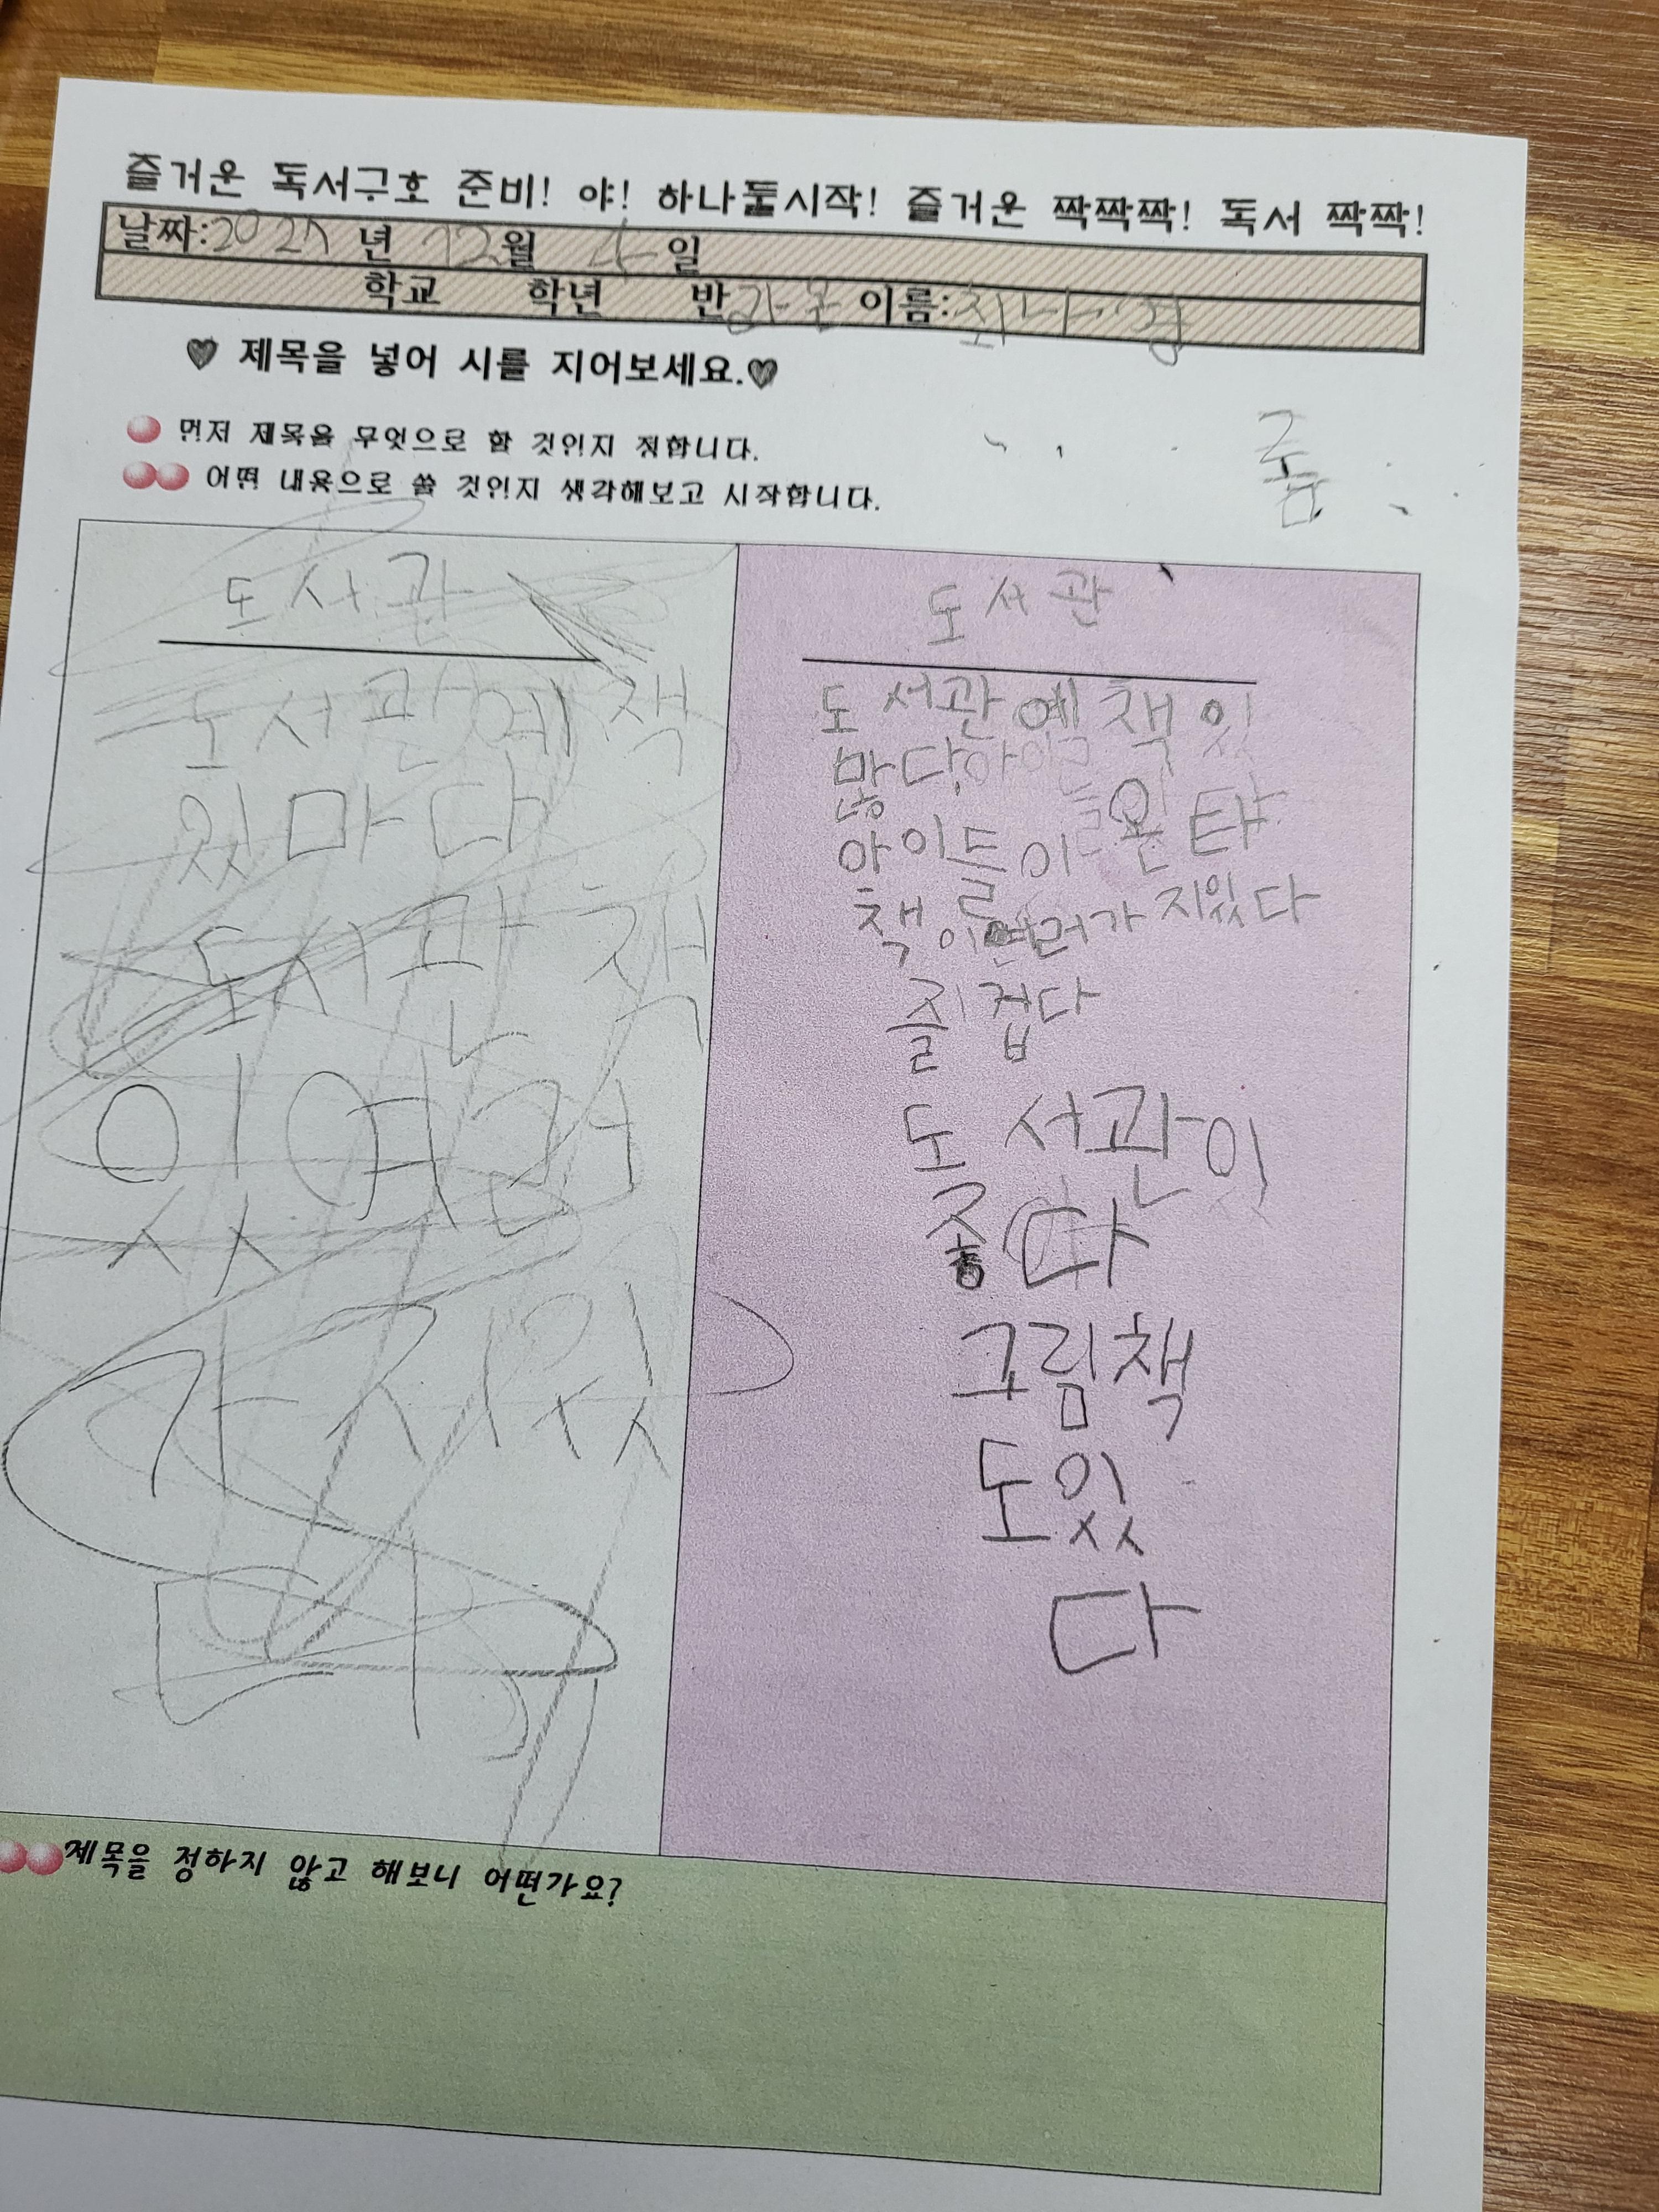 즐거운 독서구호 준비! 야! 하나둘시작! 즐거운 짝짝짝! 독서 짝짝!
날짜: 년 12월 4일
학교 학년 반 이름:
♥ 제목을 넣어 시를 지어보세요.♥
먼저 제목을 무엇으로 할 것인지 정합니다.
어떤 내용으로 쓸 것인지 생각해보고 시작합니다.
도서관
도서관예 책
있마다
도서관 책
있여러
가지있
다
도서관
도서관예 책잇
많다
아이들이 온타
책이여러가지있다
즐겁다
도서관잇
좋다
그림책
도있
다
제목을 정하지 않고 해보니 어떤가요?